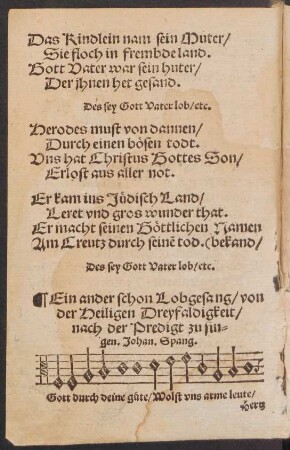 Das Kindlein nam sein Muter/
Sie floch in frembde land.
Gott Vater war sein huter/
Der jhnen het gesand.
Des sey Gott Vater lob/etc.
Herodes must von dannen/
Durch einen bösen todt.
Vns hat Christus Gottes Son/
Erlost aus aller not.
Er kam ins Jüdisch Land/
Leret vnd gros wunder that.
Er macht seinen Göttlichen Namen
Am Creutz durch seinẽ tod. (bekand/
Des sey Gott Vater lob/etc.
¶ Ein ander schon Lobgesang/von
der Heiligen Dreyfaldigkeit/
nach der Predigt zu sin-
gen. Johan. Spang.
Gott durch deine güte/Wolst vns arme leute/
Hertz